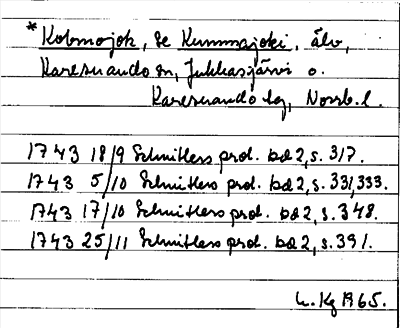 *Kobmojok, se Kummajoki, älv,
Karesuando sn, Jukkasjärvi o.
Karesuando tg, Norrb. l.
1743 18/9 Schnitlers prot. bd 2, s. 317.
1743 5/10 Schnitlers prot. bd 2, s. 331, 333.
1743 17/10 Schnitlers prot. bd 2, s. 348.
1743 25/11 Schnitlers prot. bd 2, s. 391.
Kg 1965.